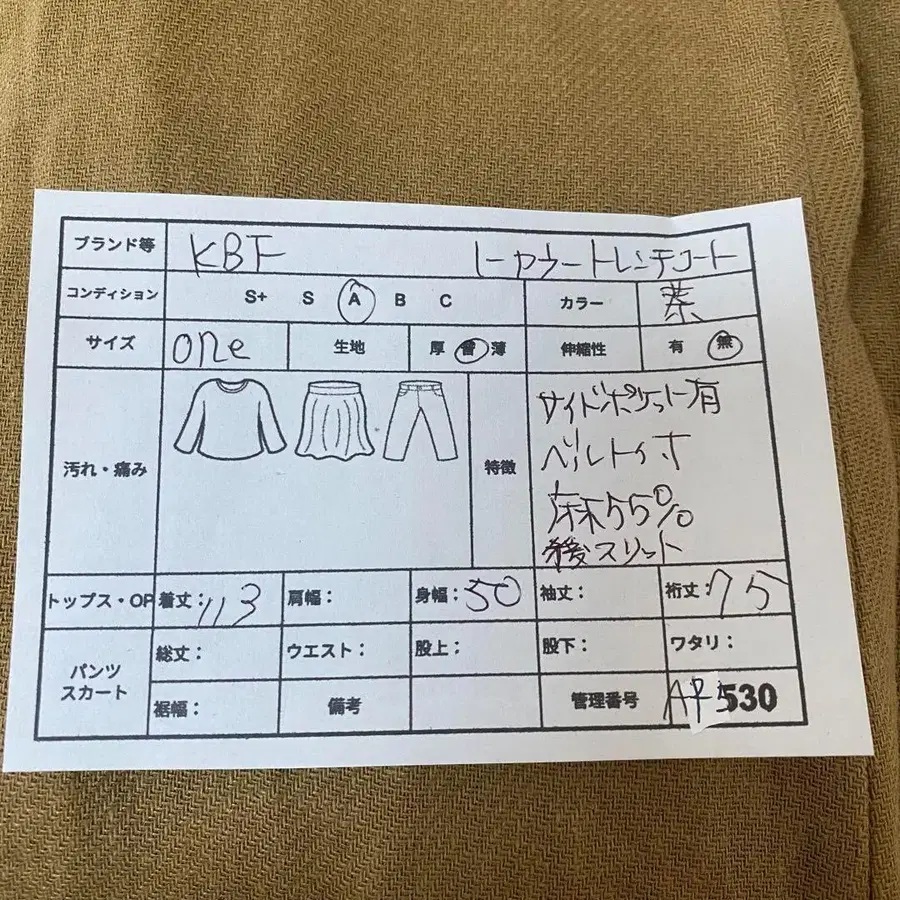 ブランド等 KBF レーヤウートレンチコート
コンディション S+ S A B C カラー 茶
サイズ one 生地 厚 普 薄 伸縮性 有 無
汚れ・痛み 特徴
サイドポケット有
ベルト付
麻55%
後スリット
トップス・OP 着丈：113 肩幅： 身幅：50 袖丈： 裄丈：75
パンツ スカート
総丈： ウエスト： 股上： 股下： ワタリ：
裾幅： 備考 管理番号 AP 530